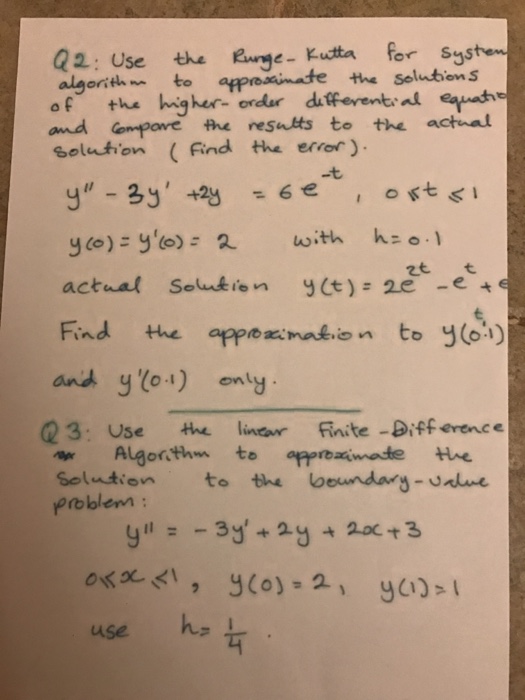 Q2: Use the Runge-Kutta for System
algorithm to approximate the solutions
of the higher-order differential equatio
and Compare the results to the actual
Solution (Find the error).
y'' - 3y' + 2y = 6e^-t, 0 ≤ t ≤ 1
y(0) = y'(0) = 2 with h = 0.1
actual Solution y(t) = 2e^2t - e^t + e
Find the approximation to y(0.1)
and y'(0.1) only.
Q3: Use the linear Finite-Difference
Algorithm to approximate the
Solution to the boundary-value
problem:
y'' = -3y' + 2y + 2x + 3
0 ≤ x ≤ 1, y(0) = 2, y(1) = 1
use h = 1/4.